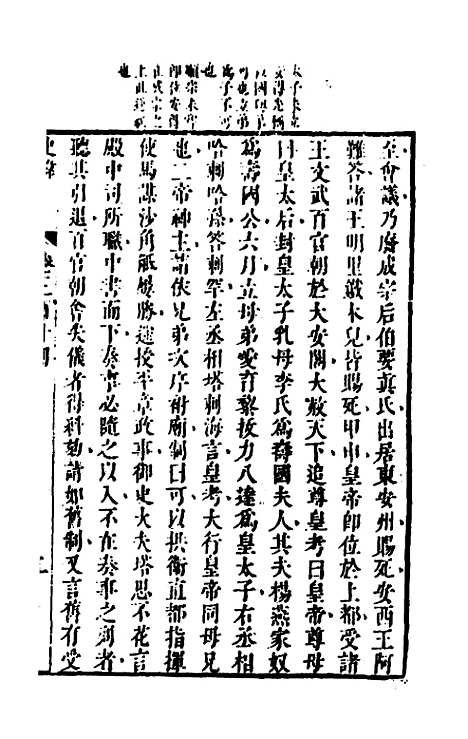 太子未立
也
至會議乃廢成宗后伯要眞氏出居東安州賜死安西王阿
難答諸王明里鐵木兒皆賜死甲申皇帝卽位於上都受諸
王文武百官朝於大安閣大赦天下追尊皇考曰皇帝尊母
曰皇太后封皇太子乳母李氏爲壽國夫人其夫楊燕家奴
爲壽國公六月立母弟愛育黎拔力八達爲皇太子右丞相
哈剌哈孫答剌罕左丞相塔剌海言皇考大行皇帝同母兄
也二帝神主請依兄弟次序祔廟制曰可以拱衞直都指揮
使馬謀沙角觝屢勝遥授平章政事御史大夫塔思不花言
殿中司所職中書而下奏事必隨之以入不在奏事之列者
聽其引退百官朝會失儀者得科劾請如舊制又言舊有受
史緯